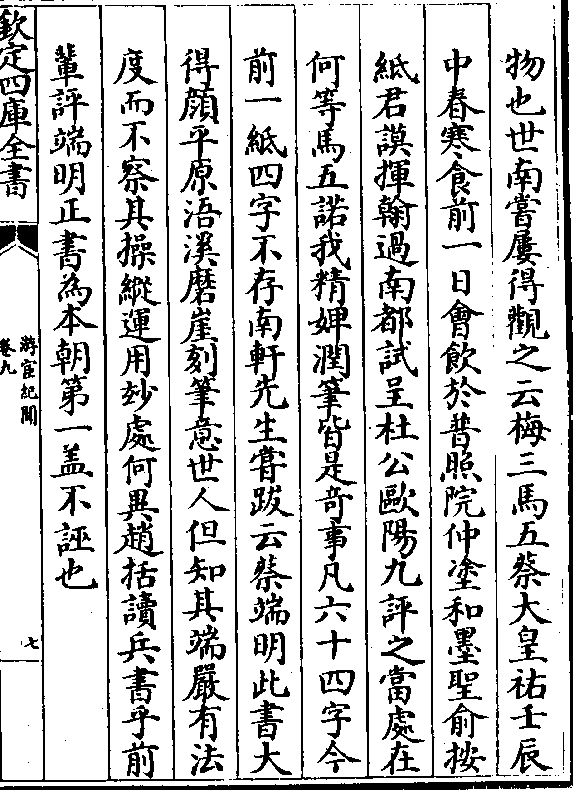 物也世南嘗屢得觀之云梅三馬五蔡大皇祐壬辰
中春寒食前一日會飲於普照院仲塗和墨聖俞按
紙君謨揮翰過南都試呈杜公歐陽九評之當處在
何等馬五諾我精婢潤筆皆是奇事凡六十四字今
前一紙四字不存南軒先生嘗跋云蔡端明此書大
得顔平原浯溪磨崖刻筆意世人但知其端嚴有法
度而不察其操縱運用妙處何異趙括讀兵書乎前
輩評端明正書為本朝第一盖不誣也
欽定四庫全書
游宦紀聞
卷九
七